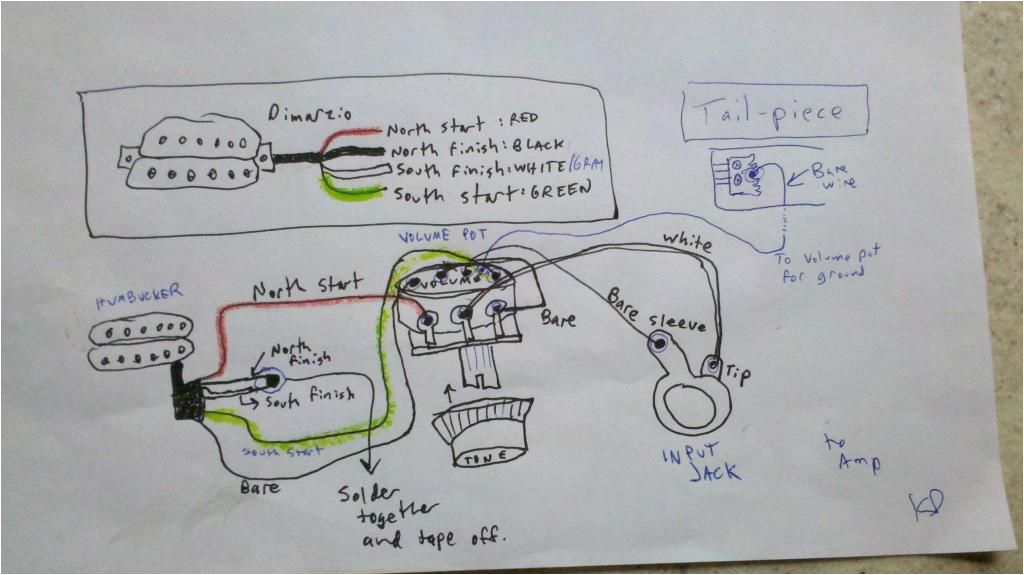 Dimarzio
North start : RED
North Finish: BLACK
South Finish: WHITE/GRAY
South start: GREEN
Tail-piece
Bare
wire
To Volume pot
for ground
VOLUME POT
White
HUMBUCKER
North Start
VOLUME
Bare
Bare sleeve
North
finish
South Finish
Tip
South Start
Bare
TONE
INPUT
JACK
to
Amp
Solder
together
and tape off.